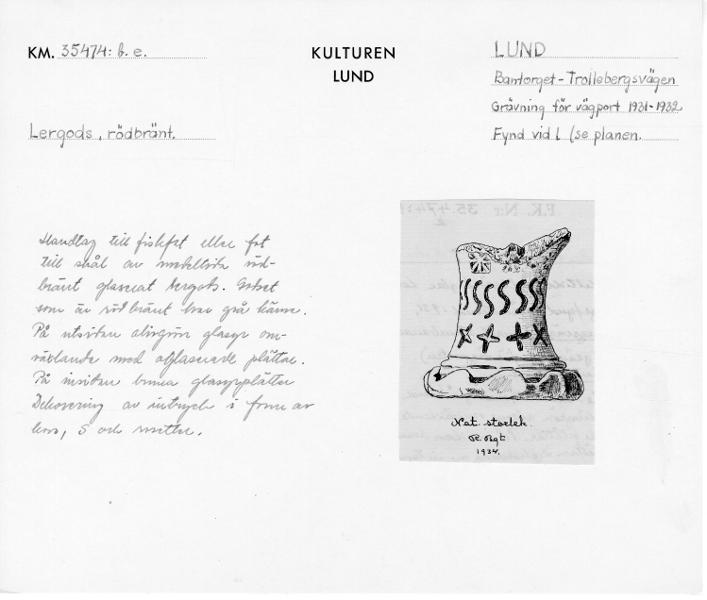 KM. 35474: b. e.
KULTUREN
LUND
LUND
Bantorget - Trollebergsvägen
Grävning för vägport 1931-1932.
Fynd vid l (se planen.
Lergods, rödbränt.
Handtag till fiskfat eller fot
till skål av medeltida röd-
bränt glaserat lergods. Godset
som är rödbränt har grå kärna.
På utsidan olivgrön glasyr om-
växlande med oglaserade fläckar.
På insidan bruna glasyrfläckar
Dekorering av intryck i form av
kors, S och rosetter.
Nat. storlek.
1934.